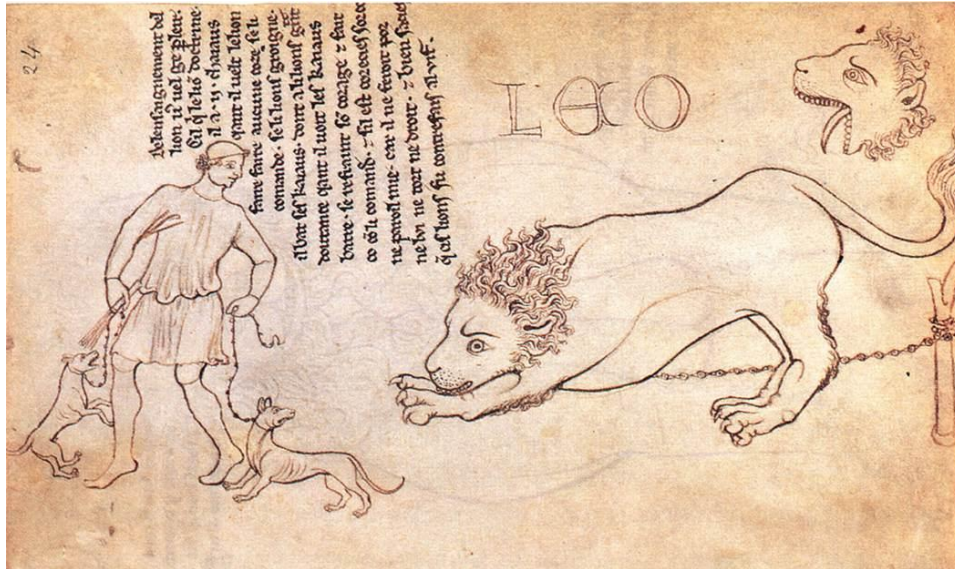 24
De lensaingnement del
lion uel ge pler.
Cil q̄ le liō doctrine.
il a .ij. chaiaus
qant il uelt le lion
faire faire aucune coze. se li
comande. se li lions groigne.
il bat ses kaiaus. dont a li lions grāt
doutance qant il uoit les kaiaus
batre. se refraint sō corage ⁊ fait
co cō li comand. ⁊ sil est corecies sor co
ne paroil mie. car il ne feroit por
nelui ne tort ne droit. ⁊ bien sacies
q̄ cis lions fu contrefais al vif.
LEO